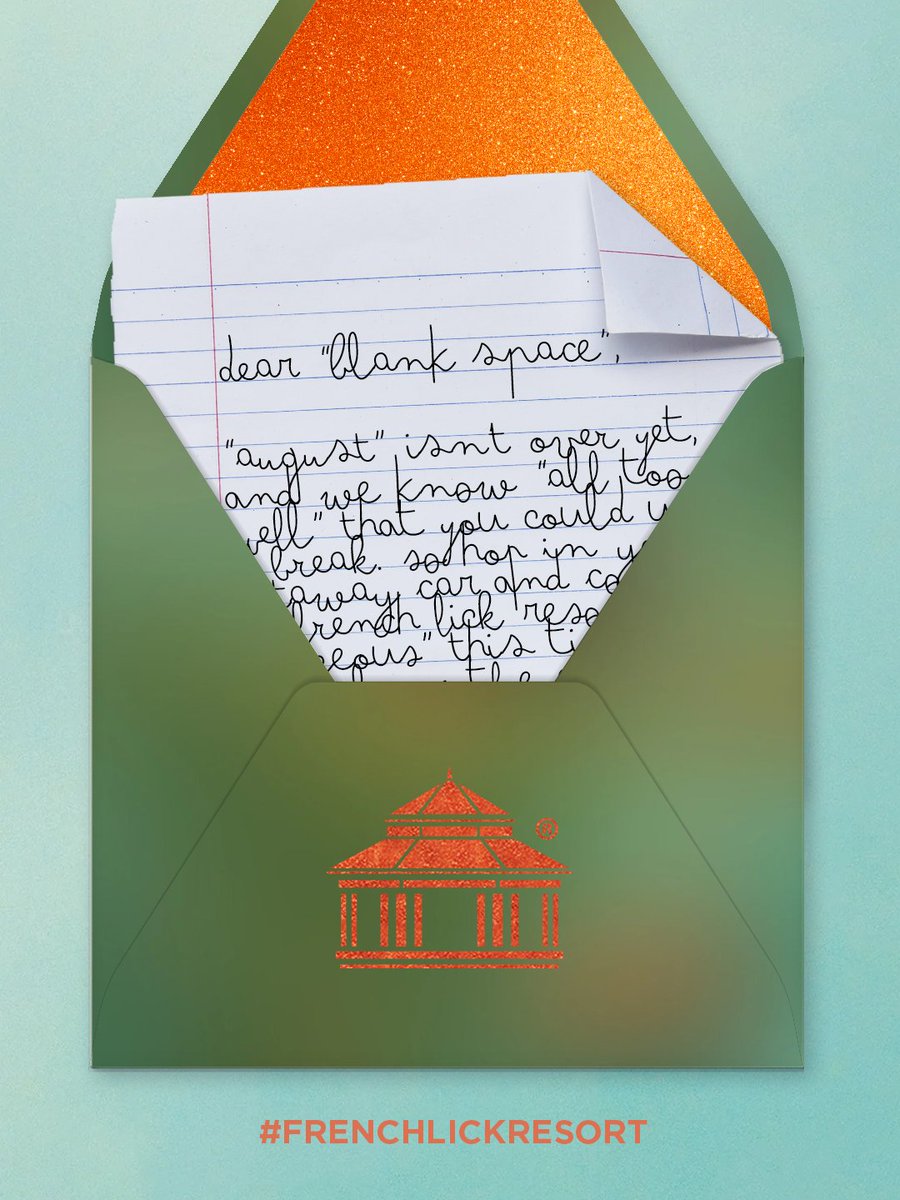 dear "blank space",
"august" isnt over yet,
and we know "all too
well" that you could u
break. so hop in y
taway car and co
french lick reso
eous" this ti
the
®
#FRENCHLICKRESORT